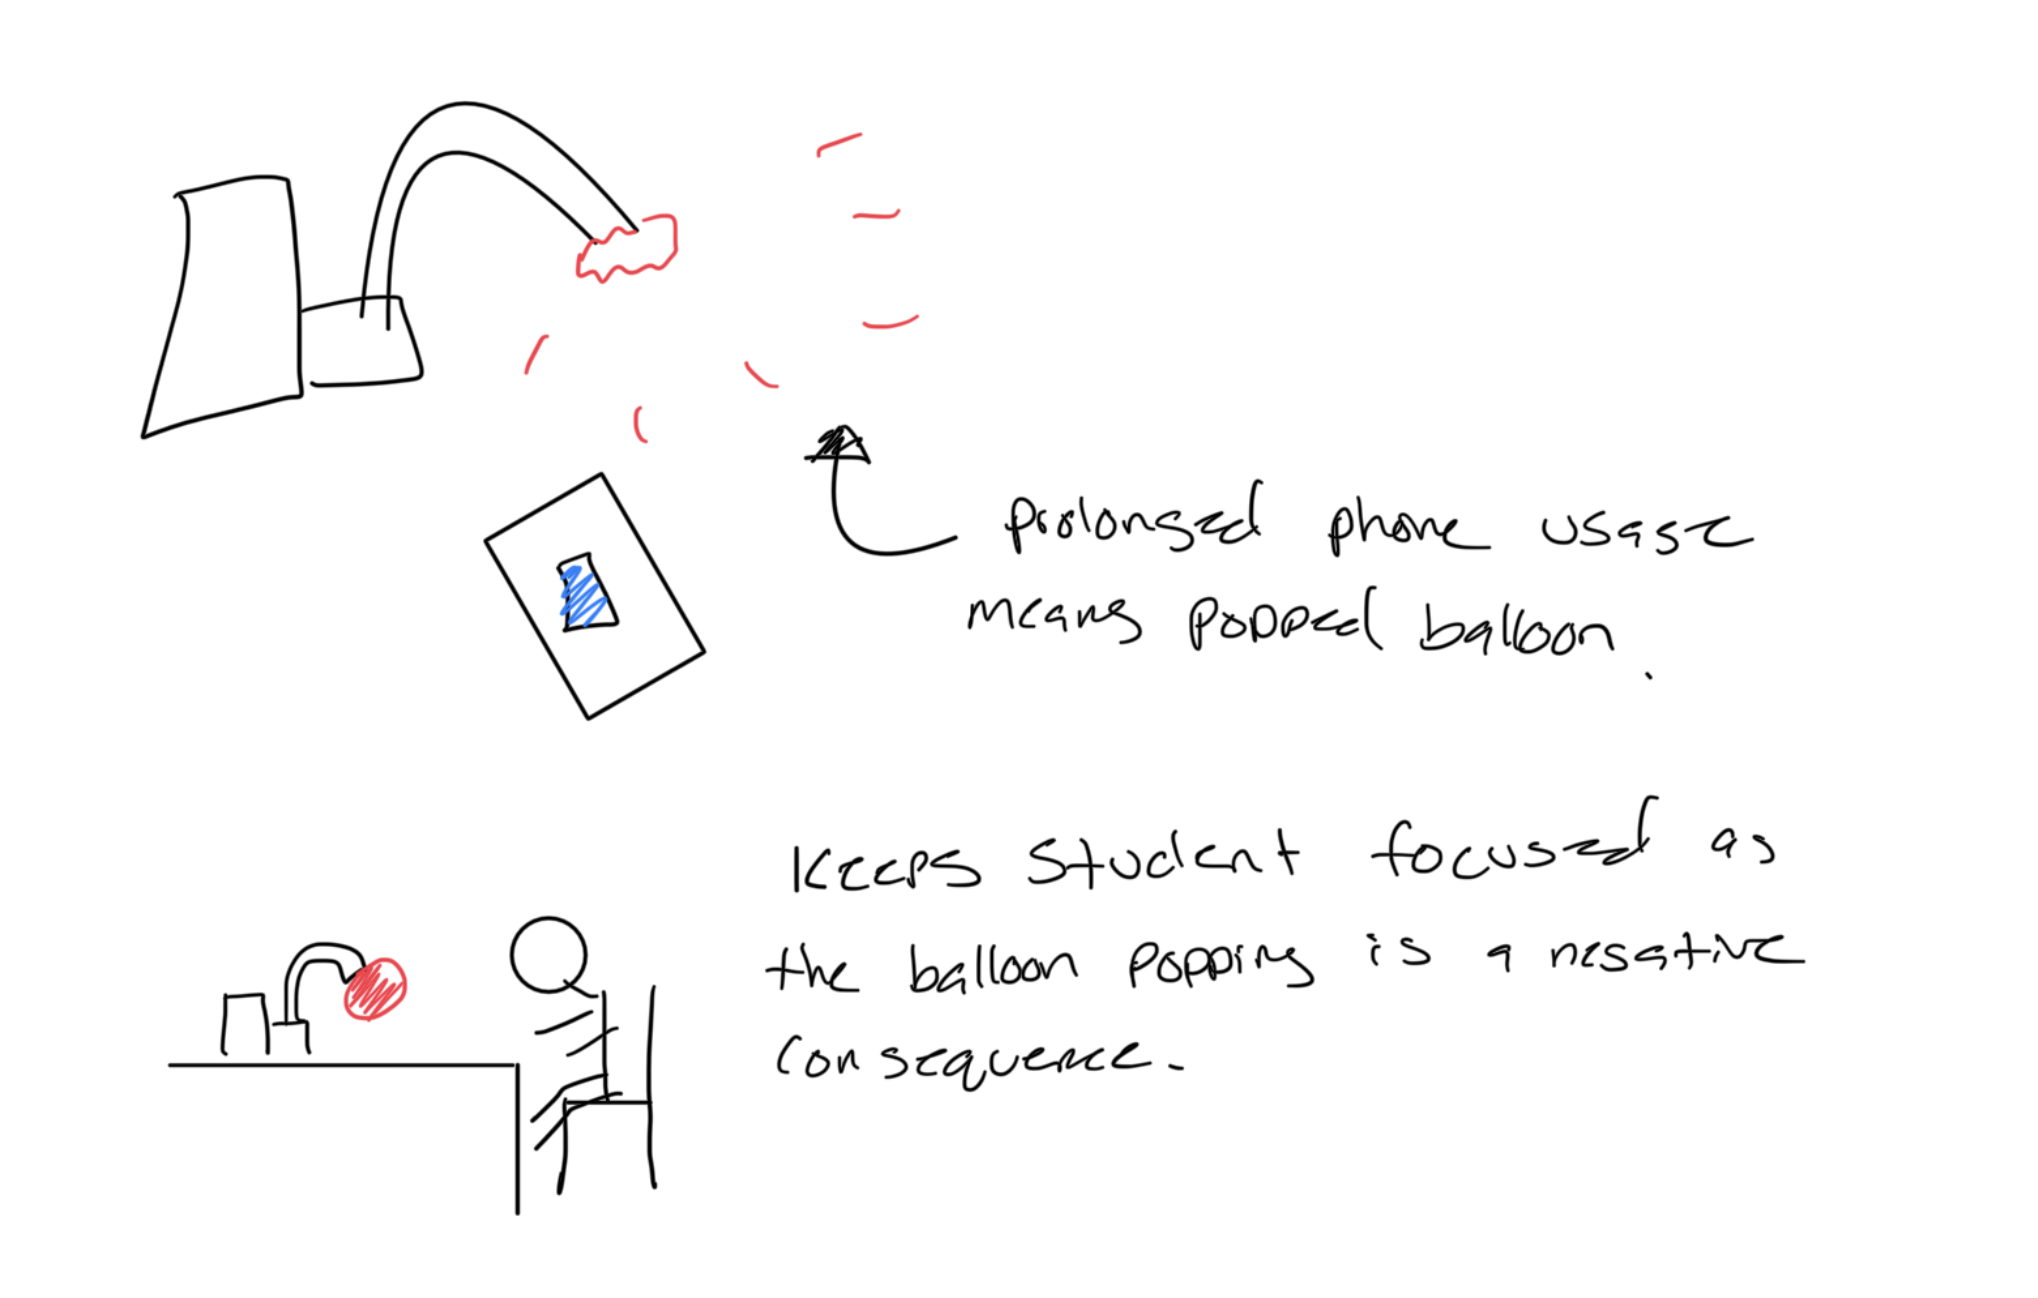 prolonged phone usage
means popped balloon.
Keeps student focused as
the balloon popping is a negative
consequence.